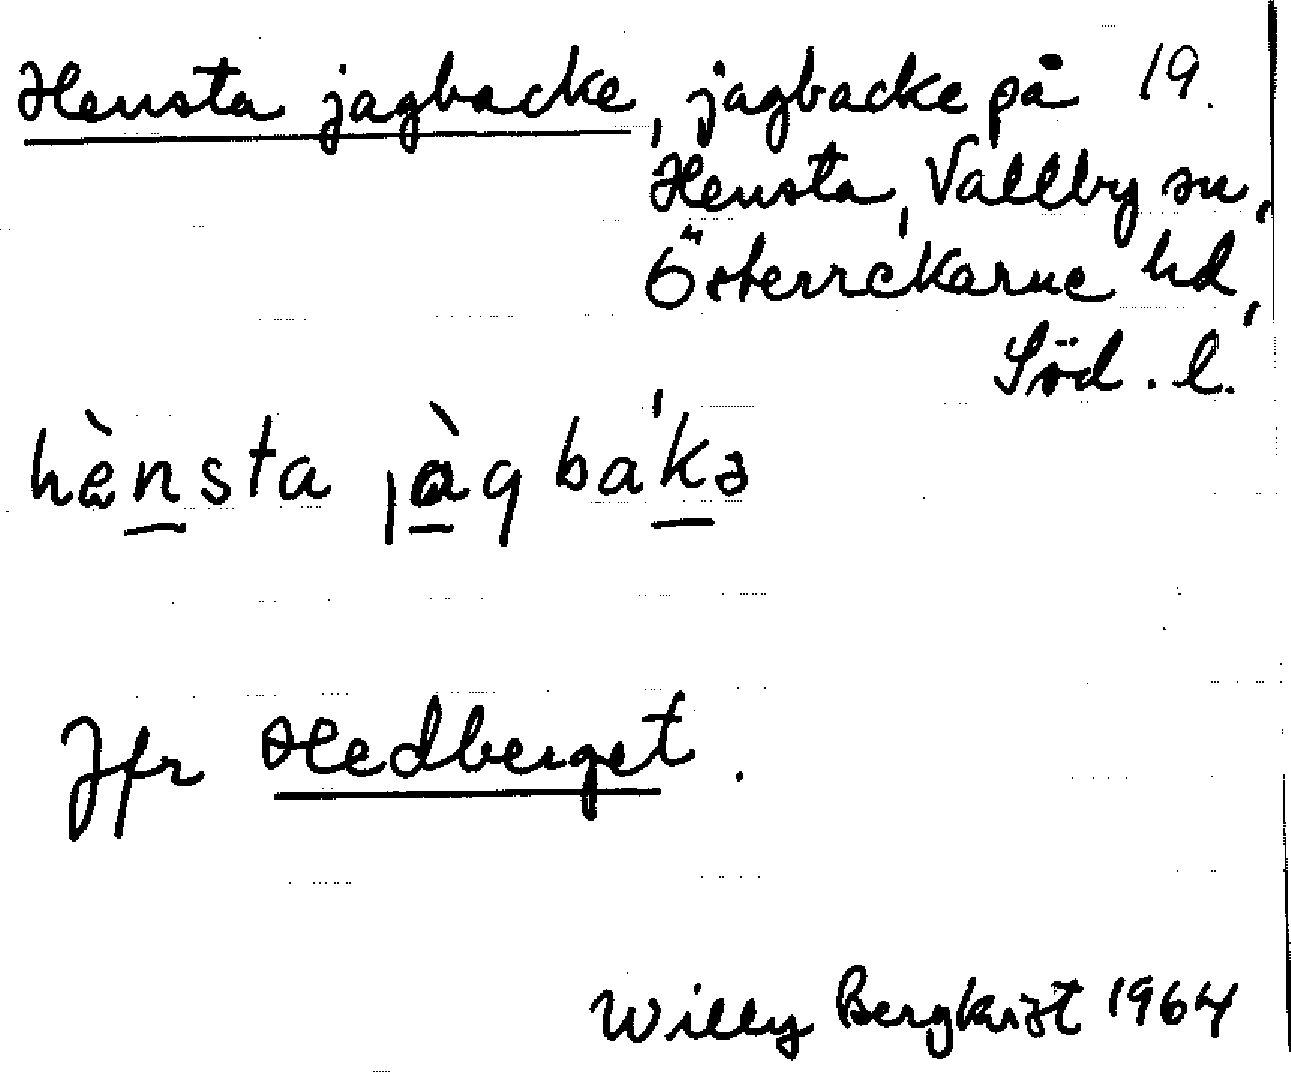 Hensta jagbacke, jagbacke på 19.
Hensta, Vallby sn,
Österrekarne hd,
Söd. l.
hènsta jàgbakə
Jfr Hedberget.
Willy Bergkvist 1964